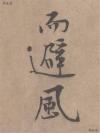 而避風